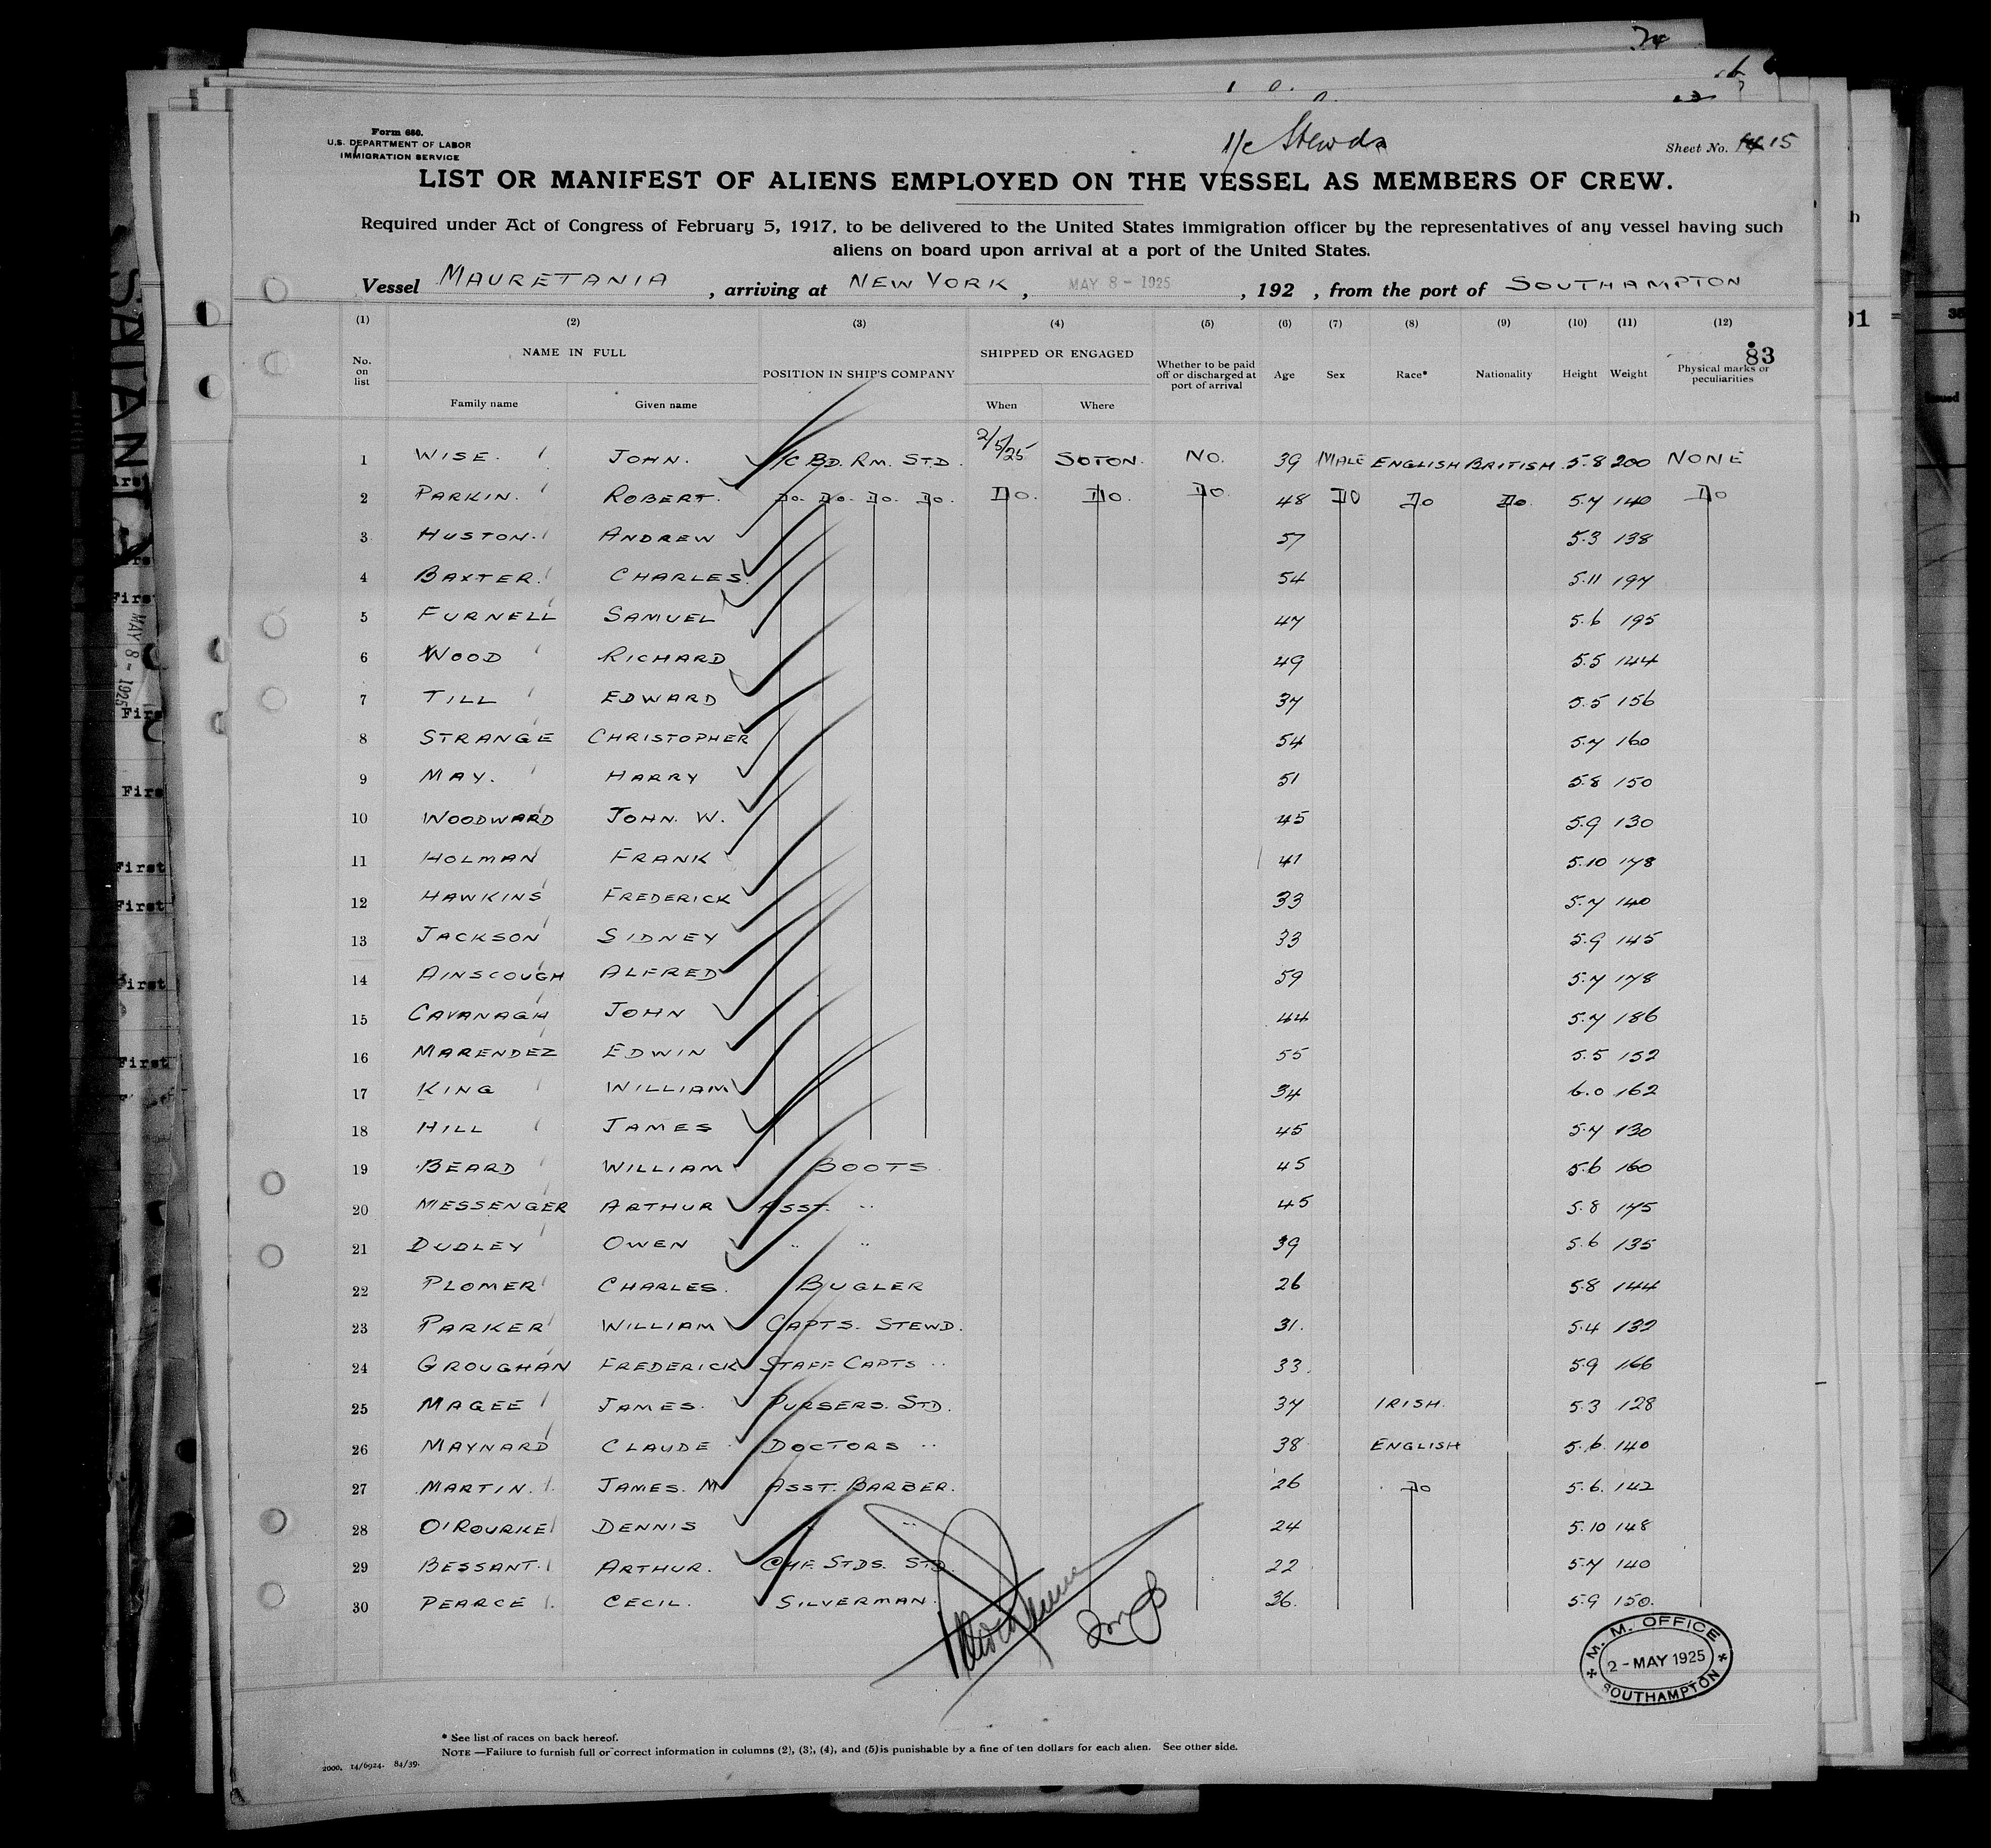 1/c Stewds
Form 680.
U.S. DEPARTMENT OF LABOR
IMMIGRATION SERVICE
Sheet No. 15
LIST OR MANIFEST OF ALIENS EMPLOYED ON THE VESSEL AS MEMBERS OF CREW.
Required under Act of Congress of February 5, 1917, to be delivered to the United States immigration officer by the representatives of any vessel having such
aliens on board upon arrival at a port of the United States.
Vessel MAURETANIA, arriving at NEW YORK, MAY 8 - 1925, 192 , from the port of SOUTHAMPTON
(1) (2) (3) (4) (5) (6) (7) (8) (9) (10) (11) (12)
83
No. on list NAME IN FULL POSITION IN SHIP'S COMPANY SHIPPED OR ENGAGED Whether to be paid off or discharged at port of arrival Age Sex Race* Nationality Height Weight Physical marks or peculiarities
Family name Given name When Where
1 WISE. JOHN. 1/C BD. RM. STD. 2/5/25 SOTON. NO. 39 MALE ENGLISH BRITISH 5.8 200 NONE
2 PARKIN. ROBERT. DO. DO. DO. DO. DO. DO. DO 48 DO DO DO. 5.7 140 DO
3 HUSTON. ANDREW 57 5.3 138
4 BAXTER. CHARLES. 54 5.11 197
5 FURNELL SAMUEL 47 5.6 195
6 WOOD RICHARD 49 5.5 144
7 TILL EDWARD 37 5.5 156
8 STRANGE CHRISTOPHER 54 5.7 160
9 MAY. HARRY 51 5.8 150
10 WOODWARD JOHN. W. 45 5.9 130
11 HOLMAN FRANK 41 5.10 178
12 HAWKINS FREDERICK 33 5.7 140
13 JACKSON SIDNEY 33 5.9 145
14 AINSCOUGH ALFRED 59 5.7 178
15 CAVANAGH JOHN 44 5.7 186
16 MARENDEZ EDWIN 55 5.5 152
17 KING WILLIAM 34 6.0 162
18 HILL JAMES 45 5.7 130
19 BEARD WILLIAM BOOTS 45 5.6 160
20 MESSENGER ARTHUR ASST. " 45 5.8 175
21 DUDLEY OWEN " " 39 5.6 135
22 PLOMER CHARLES. BUGLER 26 5.8 144
23 PARKER WILLIAM CAPTS. STEWD. 31. 5.4 132
24 GROUGHAN FREDERICK STAFF CAPTS " 33. 5.9 166
25 MAGEE JAMES. PURSERS. STD. 37 IRISH. 5.3 128
26 MAYNARD CLAUDE DOCTORS " 38 ENGLISH 5.6. 140
27 MARTIN. JAMES. M ASST. BARBER. 26 DO 5.6. 142
28 O'ROURKE DENNIS " " 24 5.10 148
29 BESSANT. ARTHUR. CHF. STDS. STD. 22 5.7 140
30 PEARCE CECIL. SILVERMAN. 36. 5.9 150.
M. M. OFFICE
2 - MAY 1925
SOUTHAMPTON
* See list of races on back hereof.
NOTE —Failure to furnish full or correct information in columns (2), (3), (4), and (5) is punishable by a fine of ten dollars for each alien. See other side.
2000. 14/6924. 84/39.
MAY 8 - 1925
First
First
First
First
First
First
First